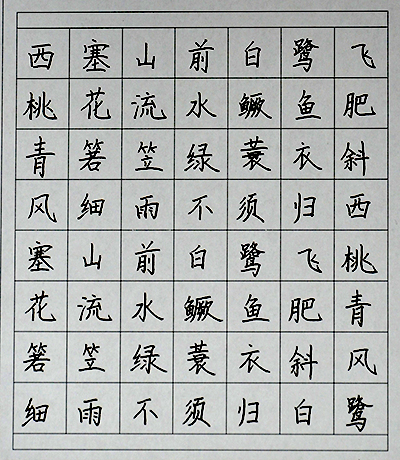 西塞山前白鹭飞
桃花流水鳜鱼肥
青箬笠绿蓑衣斜
风细雨不须归西
塞山前白鹭飞桃
花流水鳜鱼肥青
箬笠绿蓑衣斜风
细雨不须归白鹭